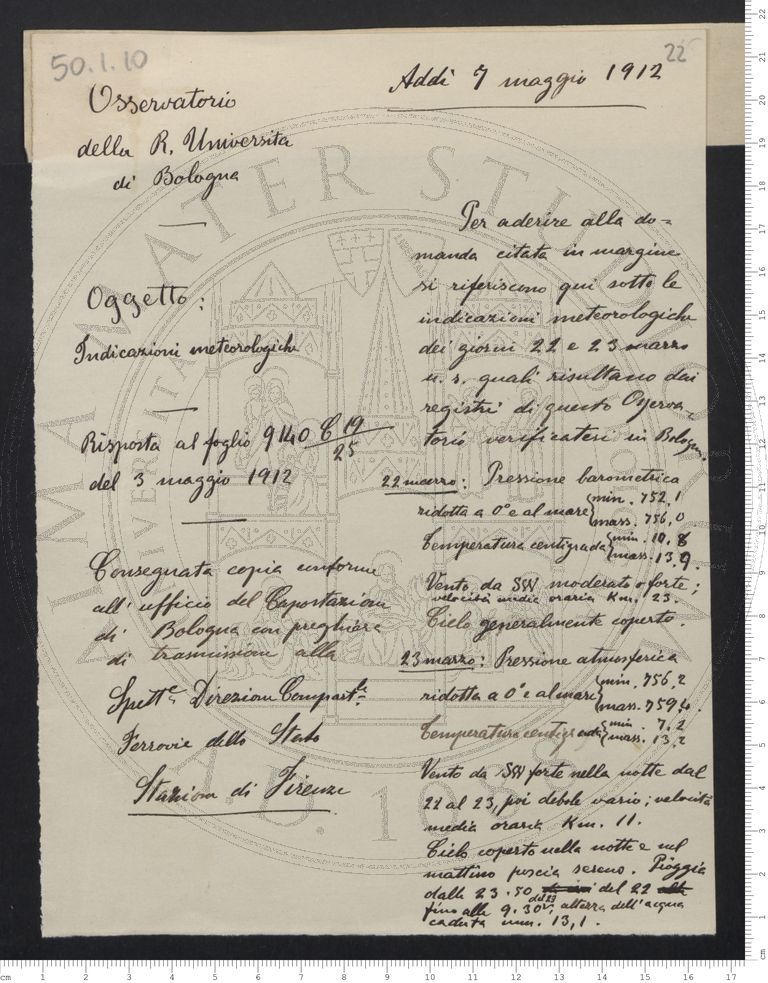 50.1.10
22
Addì 7 maggio 1912
Osservatorio
della R. Università
di Bologna
Oggetto:
Indicazioni meteorologiche
Risposta al foglio 9140 C 19/25
del 3 maggio 1912
Consegnata copia conforme
all'ufficio del Capostazione
di Bologna con preghiera
di trasmissione alla
Spett.le Direzione Compart.le
Ferrovie dello Stato
Stazione di Firenze
Per aderire alla do=
manda citata in margine
si riferiscono qui sotto le
indicazioni meteorologiche
dei giorni 22 e 23 marzo
u. s. quali risultano dai
registri di questo Osserva-
torio verificatesi in Bologna.
22 marzo: Pressione barometrica
ridotta a 0° e al mare { min. 752,1
mass. 756,0
Temperatura centigrada { min. 10.8
mass. 13.9.
Vento da SW moderato o forte;
velocità media oraria Km. 23.
Cielo generalmente coperto.
23 marzo: Pressione atmosferica
ridotta a 0° e al mare { min. 756,2
mass. 759,4.
Temperatura centigrada { min. 7,2
mass. 13,2
Vento da SW forte nella notte dal
22 al 23, poi debole vario; velocità
media oraria Km. 11.
Cielo coperto nella notte e nel
mattino poscia sereno. Pioggia
dalle 23.50 del 22
fino alle 9.30 del 23, altezza dell'acqua
caduta mm. 13,1.
ALMA MATER STUDIORUM
A.D. 1088
cm 1 2 3 4 5 6 7 8 9 10 11 12 13 14 15 16 17
cm 1 2 3 4 5 6 7 8 9 10 11 12 13 14 15 16 17 18 19 20 21 22